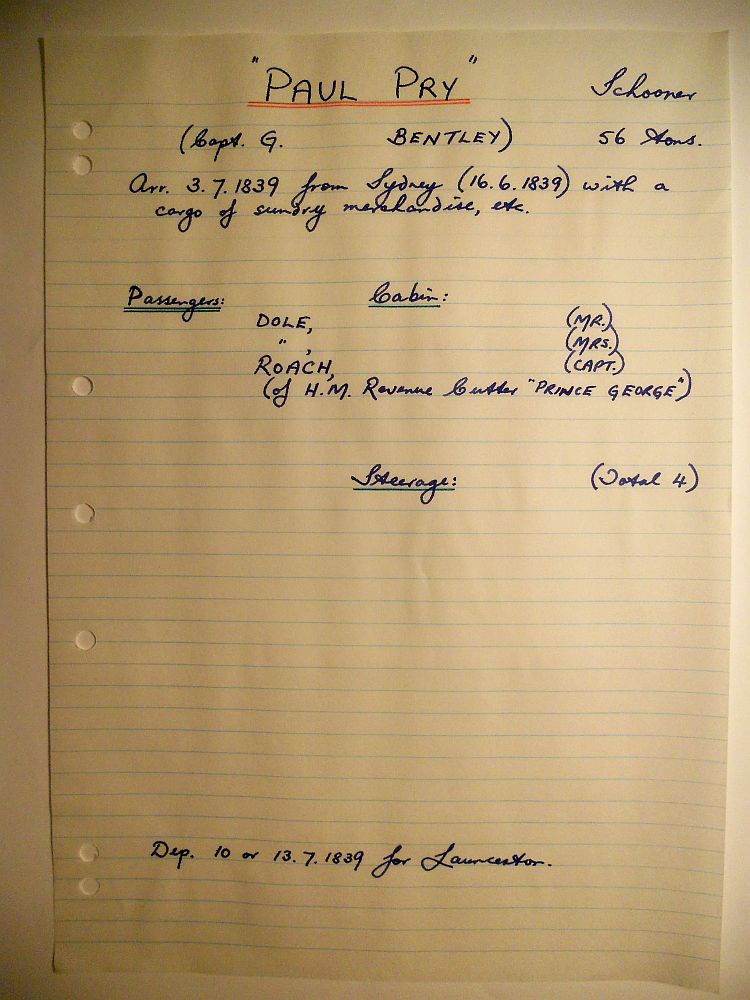 "PAUL PRY" Schooner
(Capt. G. BENTLEY) 56 tons.
Arr. 3.7.1839 from Sydney (16.6.1839) with a
cargo of sundry merchandise, etc.
Passengers: Cabin:
DOLE, (MR.)
" , (MRS.)
ROACH, (CAPT.)
(of H.M. Revenue Cutter "PRINCE GEORGE")
Steerage: (Total 4)
Dep. 10 or 13.7.1839 for Launceston.